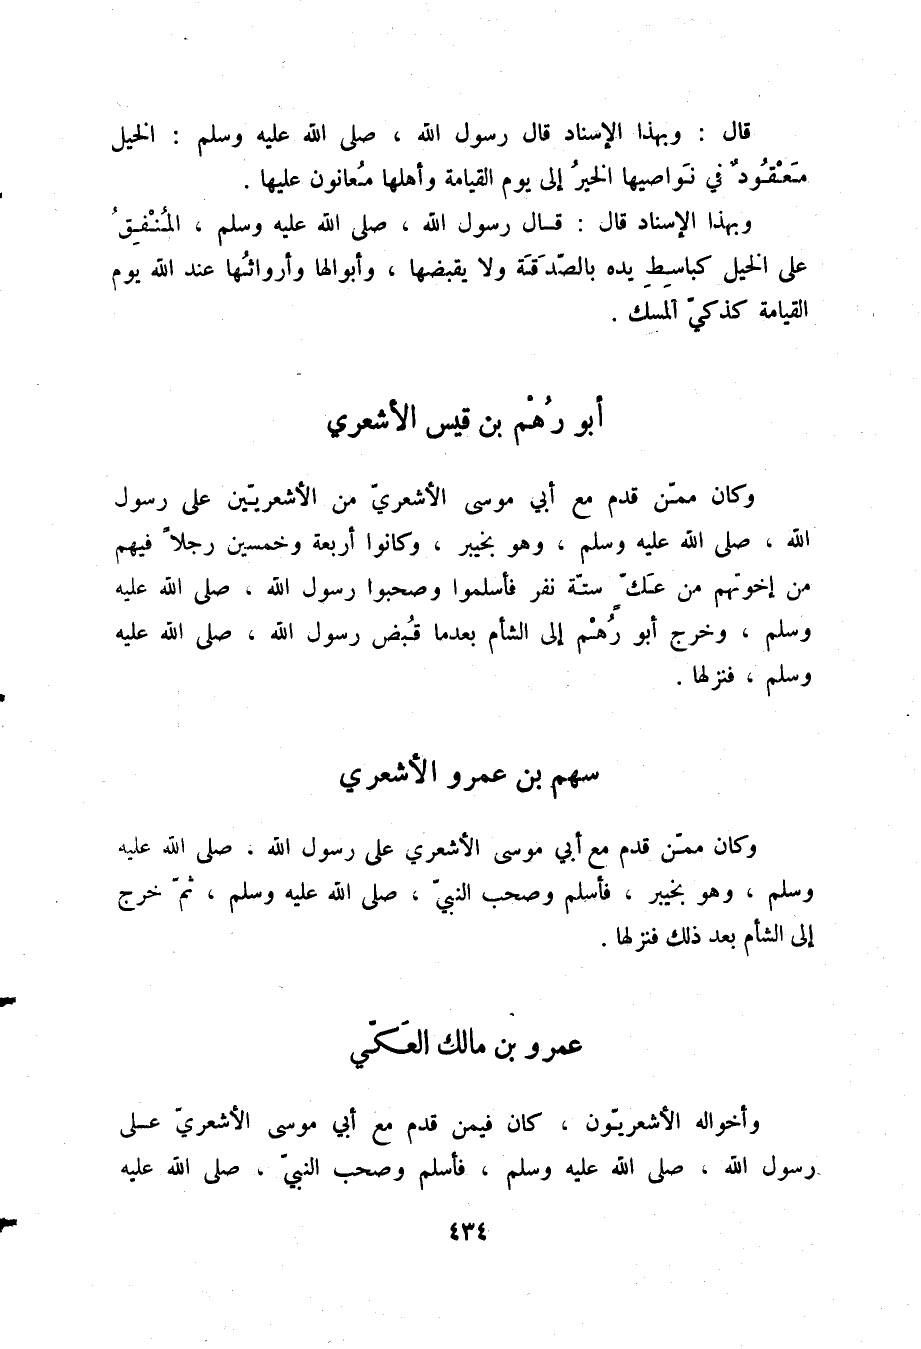 قال : وبهذا الإسناد قال رسول الله ، صلى الله عليه وسلم : الخيل
مَعْقُودٌ في نَواصيها الخيرُ إلى يوم القيامة وأهلها مُعانون عليها .
وبهذا الإسناد قال : قال رسول الله ، صلى الله عليه وسلم ، المُنْفِقُ
على الخيل كباسِطِ يده بالصّدَقَة ولا يقبضها ، وأبوالها وأرواثُها عند الله يوم
القيامة كذكيّ المسك .
أبو رُهْم بن قيس الأشعري
وكان ممّن قدم مع أبي موسى الأشعريّ من الأشعريّين على رسول
الله ، صلى الله عليه وسلم ، وهو بخيبر ، وكانوا أربعة وخمسين رجلاً فيهم
من إخوتهم من عَكّ ستّة نفر فأسلموا وصحبوا رسول الله ، صلى الله عليه
وسلم ، وخرج أبو رُهْم إلى الشأم بعدما قُبض رسول الله ، صلى الله عليه
وسلم ، فنزلها .
سهم بن عمرو الأشعري
وكان ممّن قدم مع أبي موسى الأشعري على رسول الله ، صلى الله عليه
وسلم ، وهو بخيبر ، فأسلم وصحب النبيّ ، صلى الله عليه وسلم ، ثمّ خرج
إلى الشأم بعد ذلك فنزلها .
عمرو بن مالك العَكّي
وأخواله الأشعريّون ، كان فيمن قدم مع أبي موسى الأشعريّ على
رسول الله ، صلى الله عليه وسلم ، فأسلم وصحب النبيّ ، صلى الله عليه
٤٣٤